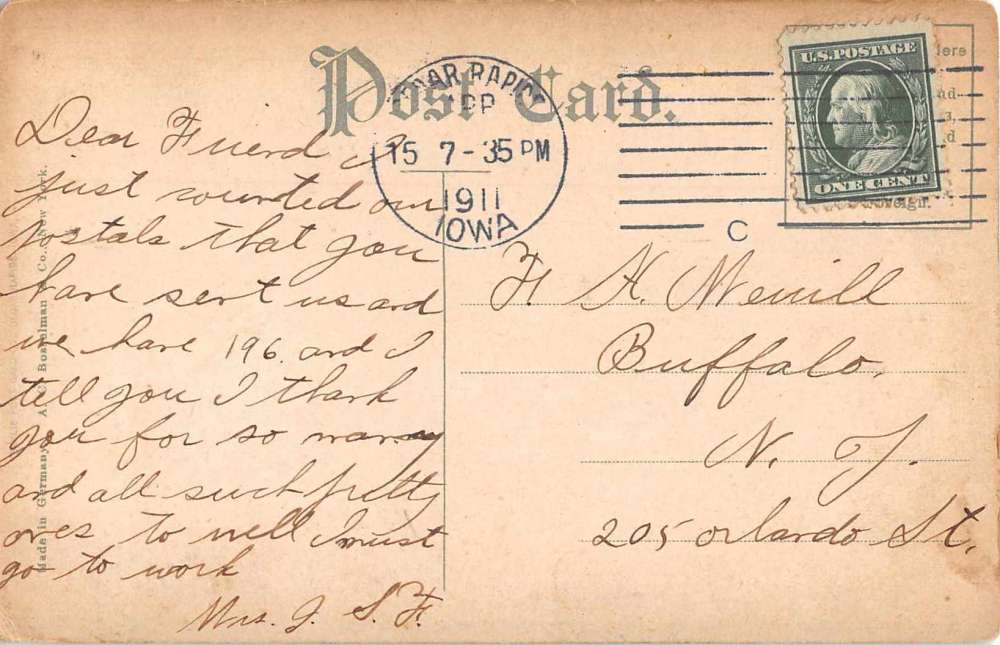 Post Card.
CEDAR RAPIDS
APR
15 7-35 PM
1911
IOWA
C
U.S. POSTAGE
ONE CENT
Here
Dear Friend I
just counted our
postals that you
have sent us and
we have 196. and I
tell you I thank
you for so many
and all such pretty
ones, to well I must
go to work
Mrs. J. S. F.
F. H. Merrill
Buffalo.
N. Y.
205 Orlando St.
Made in Germany. A. C. Bosselman Co., New York.